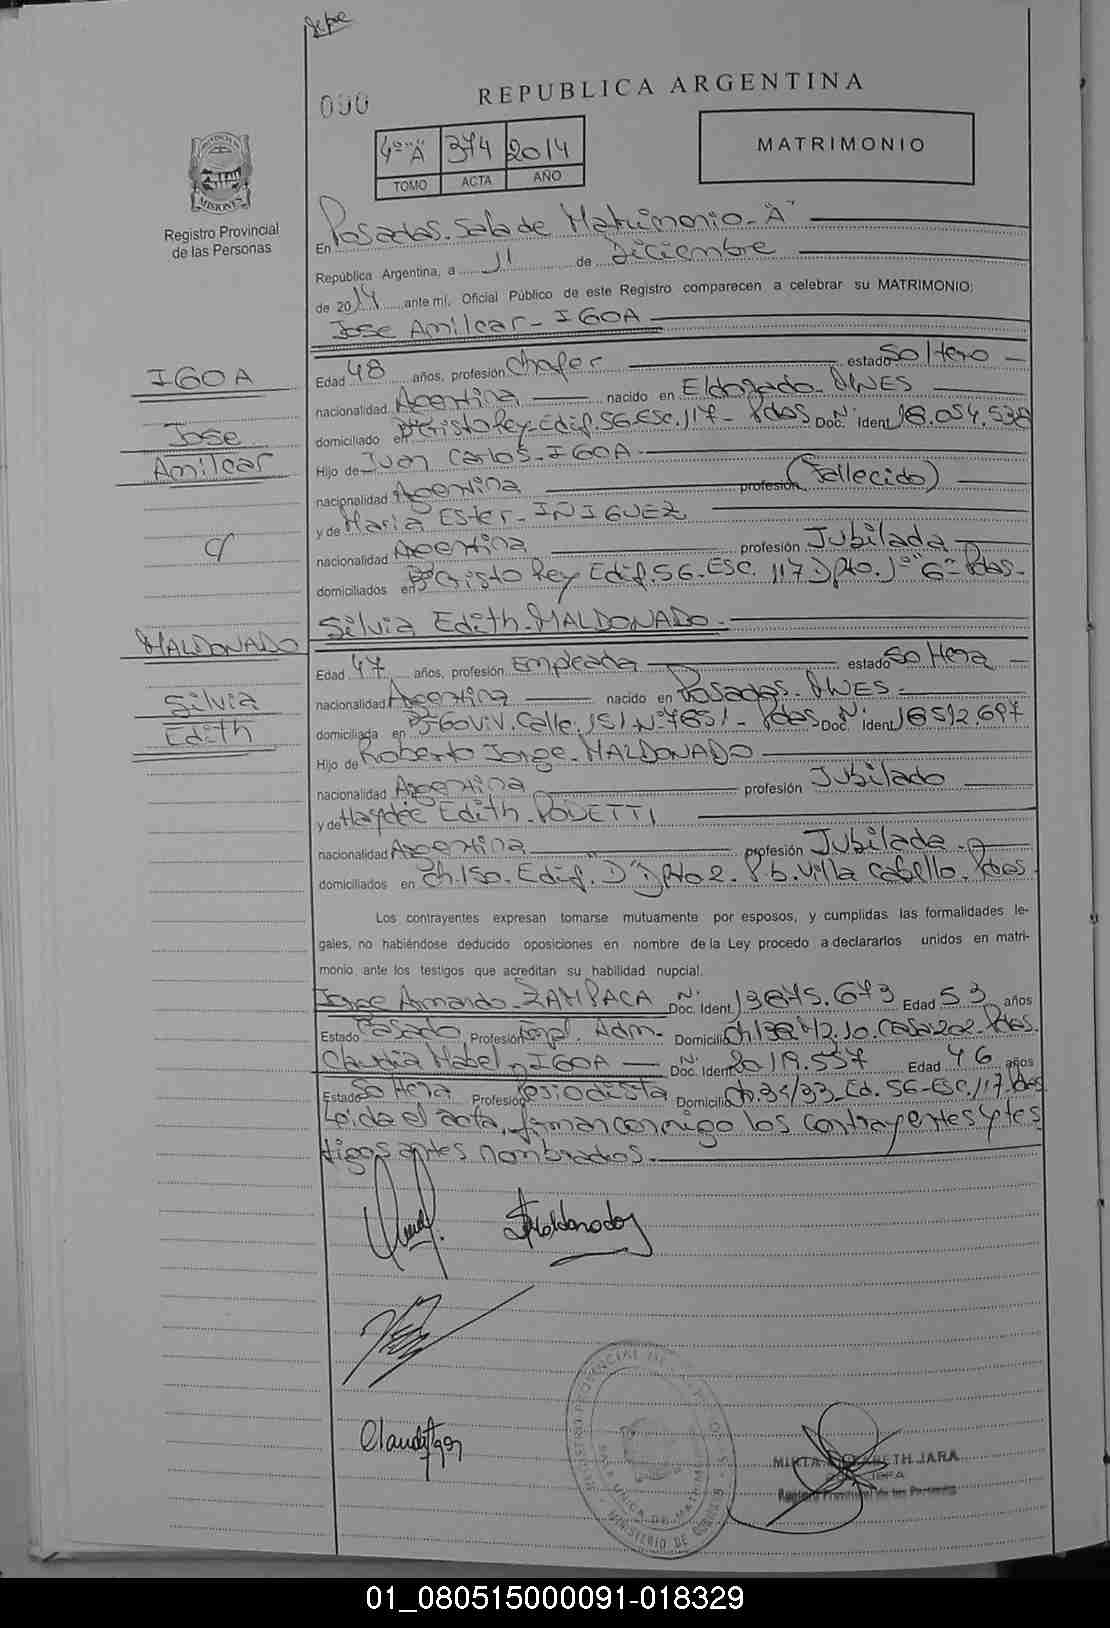 000
REPUBLICA ARGENTINA
4º "A" 374 2014
TOMO ACTA AÑO
MATRIMONIO
MISIONES
Registro Provincial
de las Personas
En Posadas. Sala de Matrimonio - "A"
República Argentina, a 11 de Diciembre
de 2014 ante mí, Oficial Público de este Registro comparecen a celebrar su MATRIMONIO:
Jose Amilcar - IGOA
IGOA
Jose
Amilcar
c/
MALDONADO
Silvia
Edith
Edad 48 años, profesión Chofer estado Soltero
nacionalidad Argentina nacido en Eldorado. MNES
domiciliado en Bº Cristo Rey - Edif. 56. Esc. 117 - Pdas Doc. Nº Ident 18.054.538
Hijo de Juan Carlos - IGOA
nacionalidad Argentina profesión (Fallecido)
y de Maria Ester - IÑIGUEZ
nacionalidad Argentina profesión Jubilada
domiciliados en Bº Cristo Rey Edif. 56 - Esc. 117 Dpto. 1º "6" Pdas.
Silvia Edith - MALDONADO
Edad 47 años, profesión Empleada estado Soltera
nacionalidad Argentina nacido en Posadas - MNES
domiciliada en Bº 60 Viv. Calle 151 Nº 7651 - Pdas Doc. Nº Ident 18512.697
Hijo de Roberto Jorge - MALDONADO
nacionalidad Argentina profesión Jubilado
y de Haydée Edith - PODETTI
nacionalidad Argentina profesión Jubilada
domiciliados en Ch. 150. Edif. "D" Dpto 2. P.b. Villa Cabello. Pdas
Los contrayentes expresan tomarse mutuamente por esposos, y cumplidas las formalidades le-
gales, no habiéndose deducido oposiciones en nombre de la Ley procedo a declararlos unidos en matri-
monio ante los testigos que acreditan su habilidad nupcial.
Jorge Armando - ZAMPACA Doc. Nº Ident. 13875.673 Edad 53 años
Estado Casado Profesión Empl. Adm. Domicilio Ch. 138 Casa 202. Pdas.
Claudia Mabel - IGOA Doc. Nº Ident 20119.557 Edad 46 años
Estado Soltera Profesión Periodista Domicilio Ch. 32/33 - Ed. 56 - Esc. 117. Pdas
Leida el acta, firman conmigo los contrayentes y tes
tigos antes nombrados.
SMaldonado
MIRTA ELIZABETH JARA
JEFA
Registro Provincial de las Personas
01_080515000091-018329